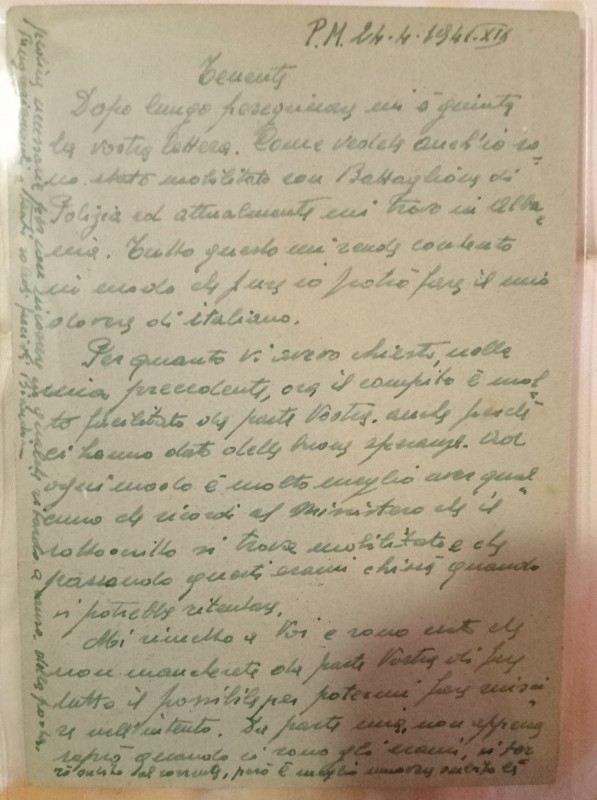 P.M. 24-4-1941-XIX
Tenente
Dopo lungo peregrinare mi è giunta
la vostra lettera. Come vedete anch'io so-
no stato mobilitato con Battaglione di
Polizia ed attualmente mi trovo in Alba-
nia. Tutto questo mi rende contento
in modo che pure io potrò fare il mio
dovere di italiano.
Per quanto Vi avevo chiesto, nella
mia precedente, ora il compito è mol-
to facilitato da parte Vostra. anche perché
ci hanno dato delle buone speranze. Ad
ogni modo è molto meglio aver qual-
cuno che ricordi al Ministero che il
sottoscritto si trova mobilitato e che
passando questi esami chissà quando
si potrebbe ritentare.
Mi rimetto a Voi e sono certo che
non mancherete da parte Vostra di fare
tutto il possibile per potermi fare riusci-
re nell'intento. Da parte mia, non appena
saprò quando ci sono gli esami, vi far-
rò subito al corrente, però è meglio
per non in qualche ritardo a causa della posta.